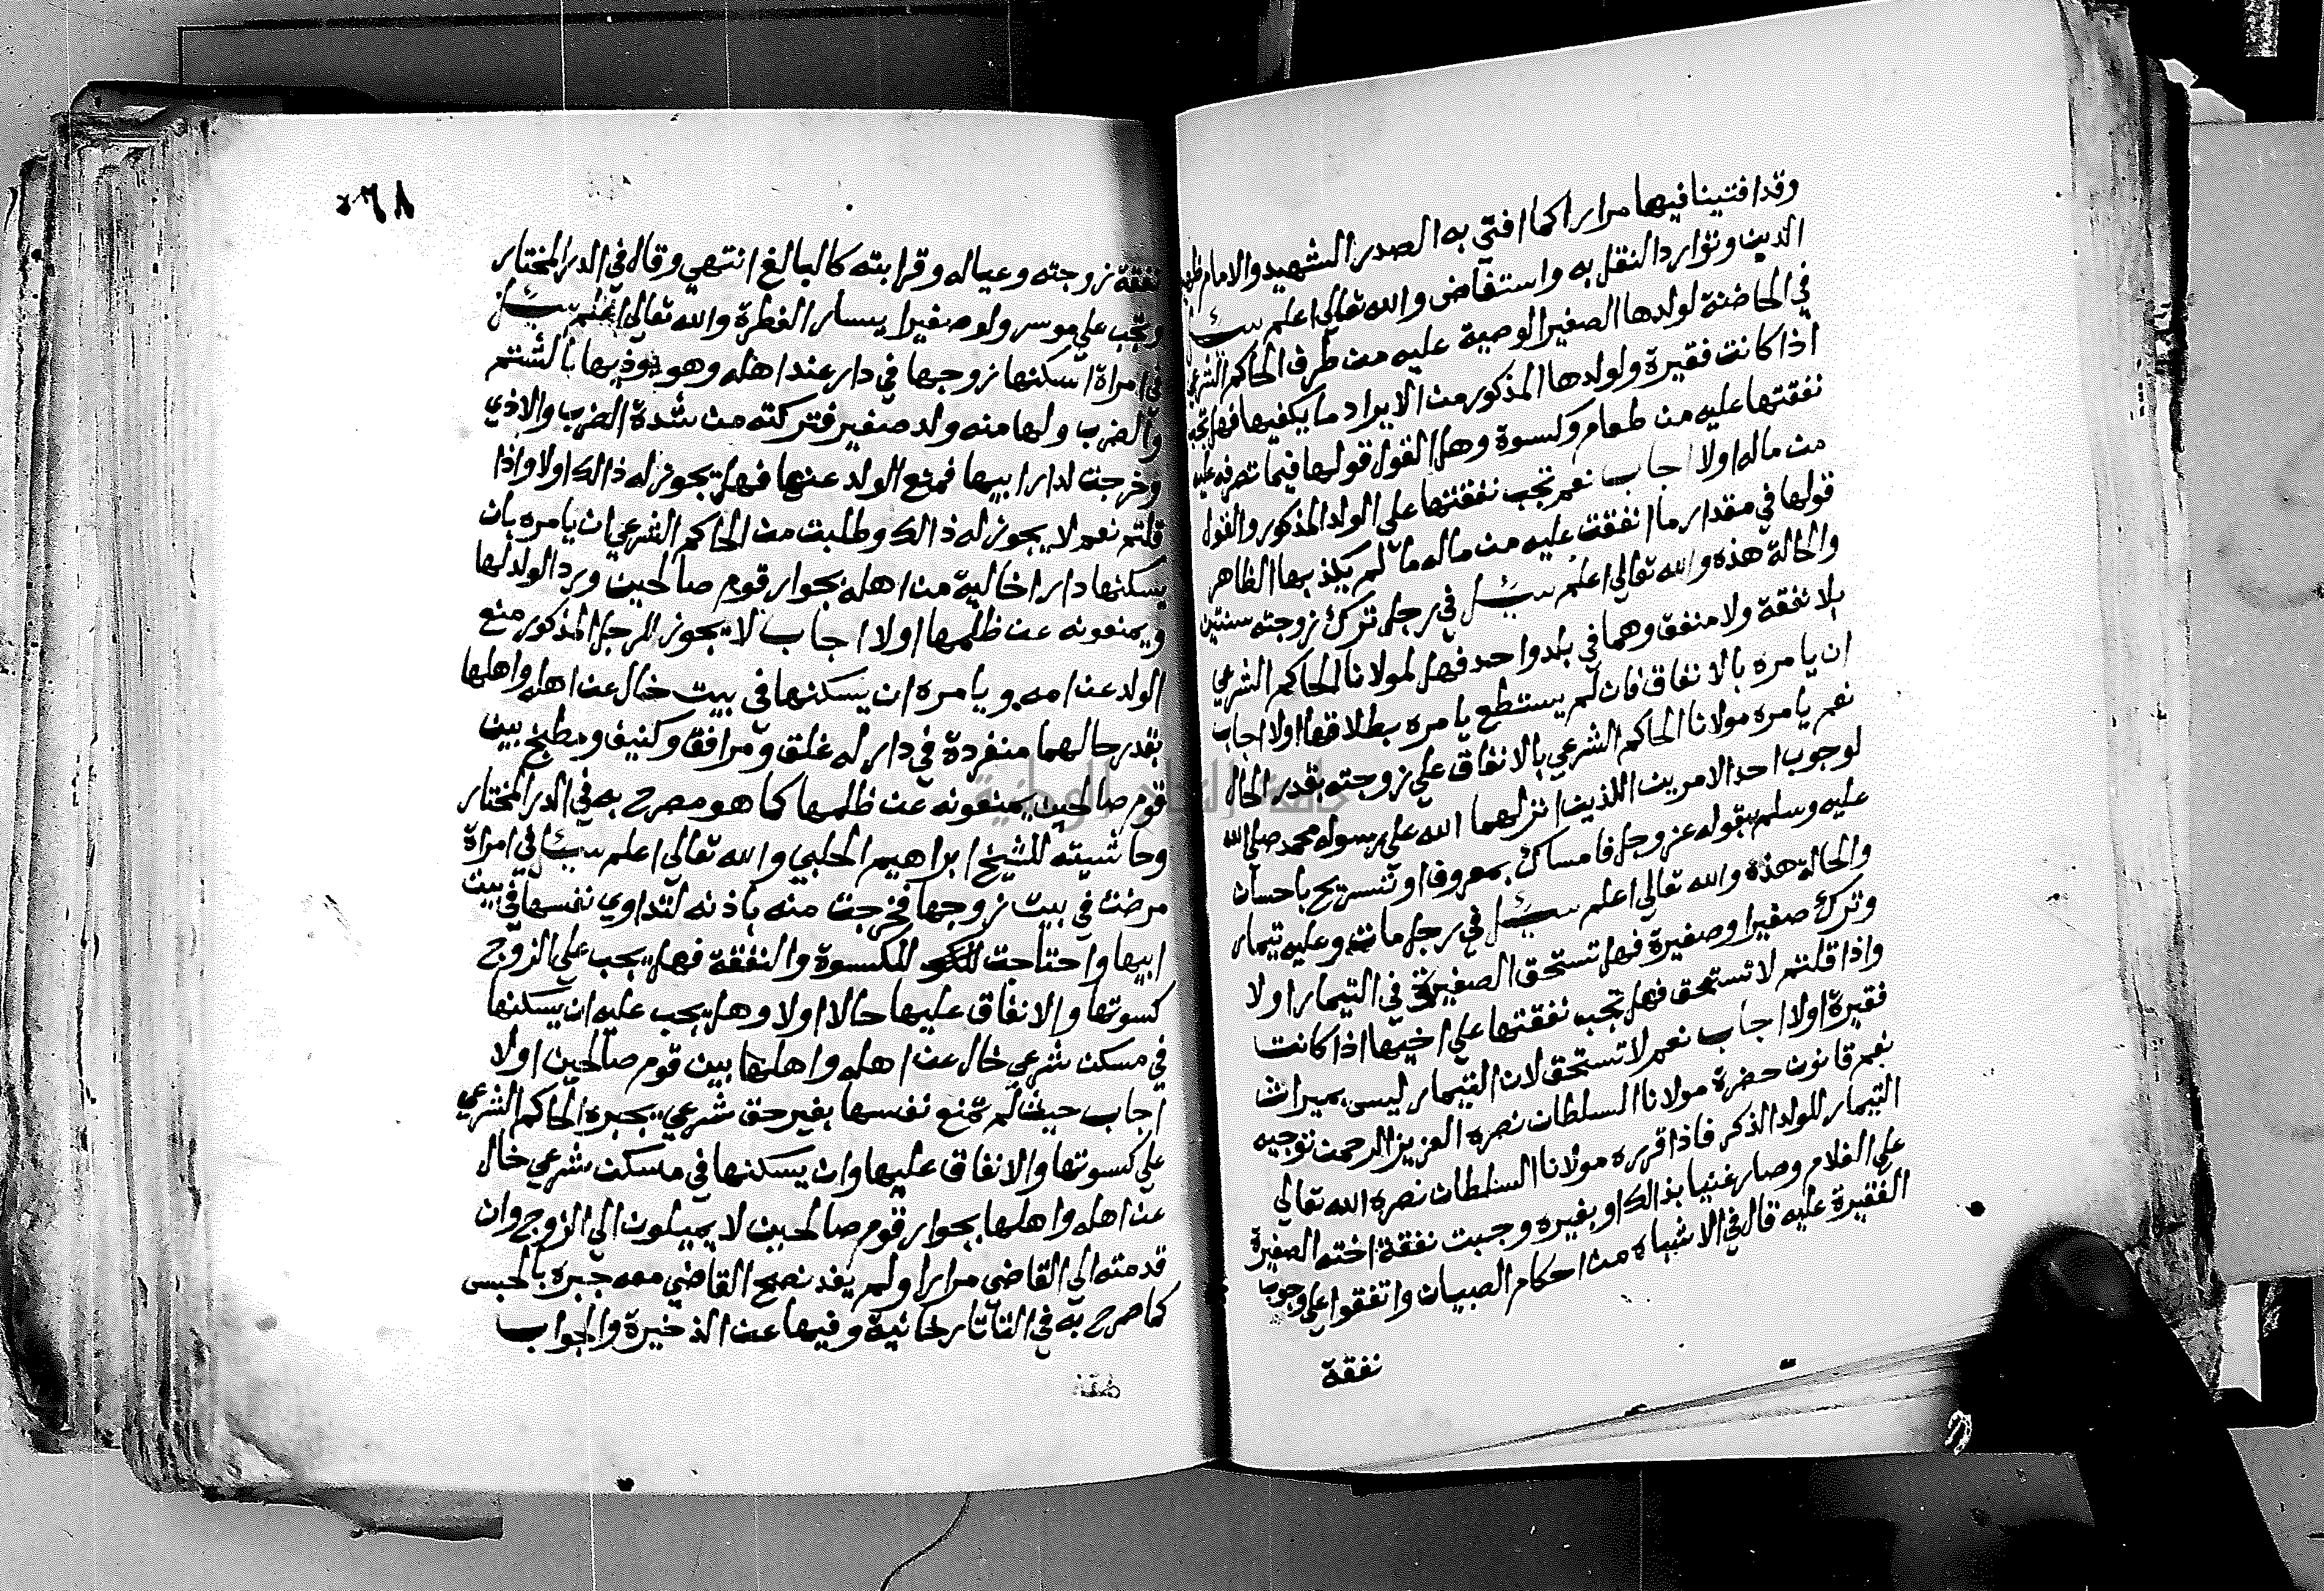 وقد افتينا فيها مرارا كما افتى به الصدر الشهيد والامام ظهير
الدين وتوارد النقل به واستفاض والله تعالى اعلم سئل
في الحاضنة لولدها الصغير الوصية عليه من طرف الحاكم الشرعي
اذا كانت فقيرة ولولدها المذكور من الايراد ما يكفيها فهل تجب
نفقتها عليه من طعام وكسوة وهل القول قولها فيما تصرفه عليه
من ماله اولا اجاب نعم تجب نفقتها على الولد المذكور والقول
قولها في مقدار ما انفقت عليه من ماله ما لم يكذبها الظاهر
والحالة هذه والله تعالى اعلم سئل في رجل ترك زوجته سنتين
بلا نفقة ولا منفق وهما في بلد واحد فهل لمولانا الحاكم الشرعي
ان يامره بالانفاق فان لم يستطع يامره بطلاقها اولا اجاب
نعم يامره مولانا الحاكم الشرعي بالانفاق علي زوجته بقدر الحال
لوجوب احد الامرين اللذين انزلهما الله على رسوله محمد صلى الله
عليه وسلم بقوله عز وجل فامساك بمعروف او تسريح باحسان
والحالة هذه والله تعالى اعلم سئل في رجل مات وعليه تيمار
وترك صغيرا وصغيرة فهل تستحق الصغيرة في التيمار اولا
واذا قلتم لا تستحق فهل تجب نفقتها على اخيها اذا كانت
فقيرة اولا اجاب نعم لا تستحق لان التيمار ليس بميراث
نعم قانون حضرة مولانا السلطان نصره العزيز الرحمن توجيه
التيمار للولد الذكر فاذا قرره مولانا السلطان نصره الله تعالى
على الغلام وصار غنيا بذالك او بغيره وجبت نفقة اخته الصغيرة
الفقيرة عليه قال في الاشباه من احكام الصبيان واتفقوا على وجوب
نفقة
٢٦٨
نفقة زوجته وعياله وقرابته كالبالغ انتهي وقال في الدر المختار
وتجب علي موسر ولو صغيرا يسار الفطرة والله تعالى اعلم سئل
في امراة اسكنها زوجها في دار عند اهله وهو يوذيها بالشتم
والضرب ولها منه ولد صغير فتركته من شدة الضرب والاذي
وخرجت لدار ابيها فمنع الولد عنها فهل يجوز له ذالك اولا واذا
قلتم نعم لا يجوز له ذالك وطلبت من الحاكم الشرعي ان يامره بان
يسكنها دارا خالية من اهله بجوار قوم صالحين ورد الولد لها
ويمنعونه عن ظلمها اولا اجاب لا يجوز للرجل المذكور منع
الولد عن امه ويامره ان يسكنها في بيت خال عن اهله واهلها
بقدر حالهما منفردة في دار له غلق ومرافق وكنيف ومطبخ بين
قوم صالحين يمنعونه عن ظلمها كما هو مصرح به في الدر المختار
وحاشيته للشيخ ابراهيم الحلبي والله تعالى اعلم سئل في امراة
مرضت في بيت زوجها فخرجت منه باذنه لتداوي نفسها في بيت
ابيها واحتاجت للكسوة والنفقة فهل يجب علي الزوج
كسوتها والانفاق عليها حالا اولا وهل يجب عليه ان يسكنها
في مسكن شرعي خال عن اهله واهلها بين قوم صالحين اولا
اجاب حيث لم تمنع نفسها بغير حق شرعي يجبره الحاكم الشرعي
علي كسوتها والانفاق عليها وان يسكنها في مسكن شرعي خال
عن اهله واهلها بجوار قوم صالحين لا يميلون الي الزوج وان
قدمته الي القاضي مرارا ولم يفد نصح القاضي معه جبره بالحبس
كما صرح به في التاتارخانية وفيها عن الذخيرة والجواب
جامعة النجاح الوطنية